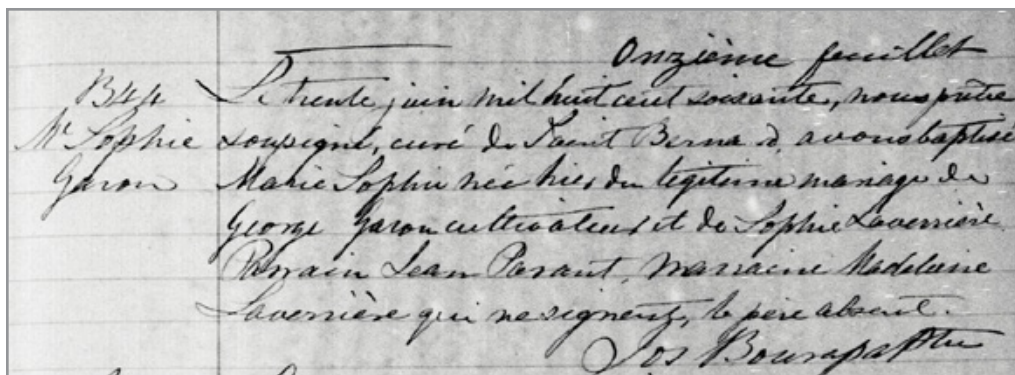 Onzième feuillet
B44
Me Sophie
Garon
Le trente juin mil huit cent soixante, nous prêtre
soussigné, curé de Saint Bernard, avons baptisé
Marie Sophie née hier du légitime mariage de
George Garon cultivateur et de Sophie Laverrière
Parrain Jean Parant, Marraine Madeleine
Laverrière qui ne signent, le père absent.
Jos Ptre